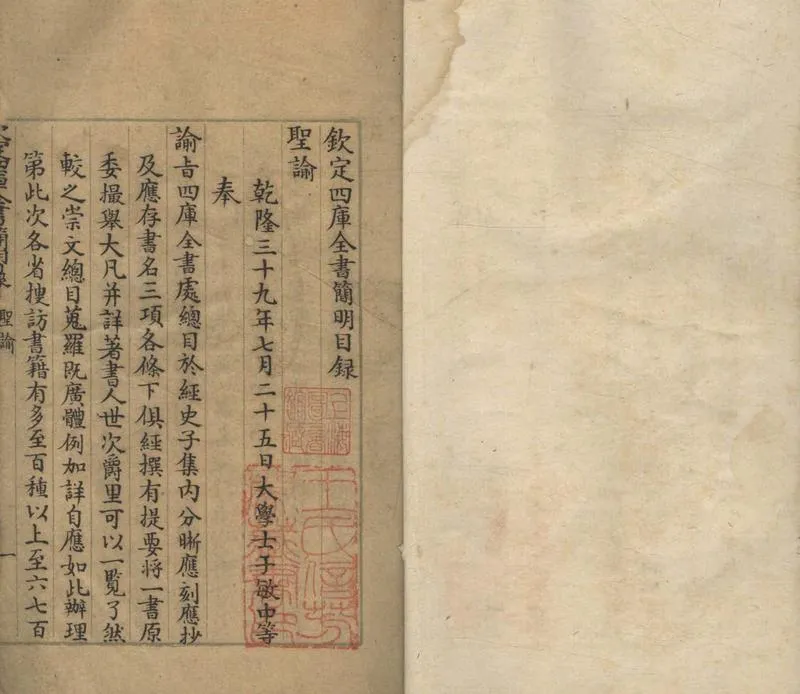 欽定四庫全書簡明目録
聖諭
乾隆三十九年七月二十五日大學士于敏中等
奉
諭旨四庫全書處總目於經史子集内分晰應刻應抄
及應存書名三項各條下俱經撰有提要將一書原
委撮舉大凡并詳著書人世次爵里可以一覧了然
較之崇文總目蒐羅既廣體例加詳自應如此辦理
第此次各省搜訪書籍有多至百種以上至六七百
全書簡明目録 聖諭 一